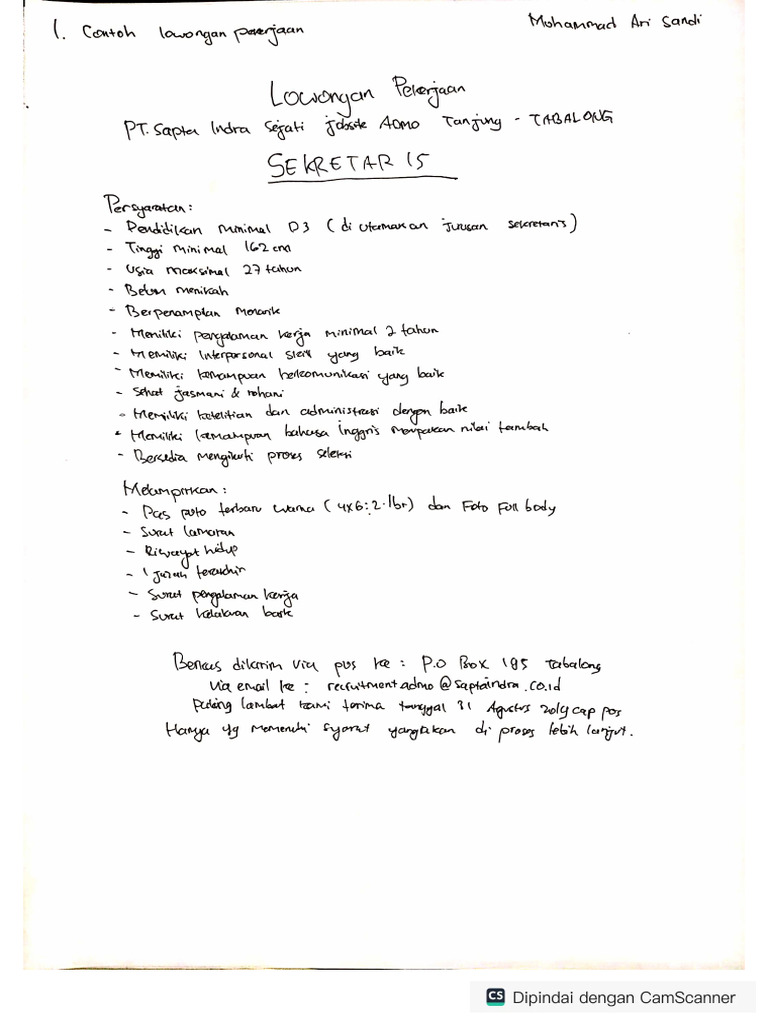 1. Contoh lowongan pekerjaan
Muhammad Ari Sandi
Lowongan Pekerjaan
PT. Sapta Indra Sejati jobsite ADMO Tanjung - TABALONG
SEKRETARIS
Persyaratan :
- Pendidikan minimal D3 (di utamakan jurusan sekretaris)
- Tinggi minimal 162 cm
- Usia maksimal 27 tahun
- Belum menikah
- Berpenampilan Menarik
- Memiliki pengalaman kerja minimal 2 tahun
- Memiliki Interpersonal skill yang baik
- Memiliki kemampuan berkomunikasi yang baik
- Sehat jasmani & rohani
- Memiliki ketelitian dan administrasi dengan baik
- Memiliki kemampuan bahasa Inggris merupakan nilai tambah
- Bersedia mengikuti proses seleksi
Melampirkan :
- Pas poto terbaru warna (4x6 : 2 lbr) dan Foto Full body
- Surat lamaran
- Riwayat hidup
- Ijazah terakhir
- Surat pengalaman kerja
- Surat kelakuan baik
Berkas dikirim via pos ke : P.O Box 185 Tabalong
via email ke : recruitment.admo@saptaindra.co.id
paling lambat kami terima tanggal 31 Agustus 2019 cap pos
Hanya yg memenuhi syarat yang akan di proses lebih lanjut.
CS Dipindai dengan CamScanner